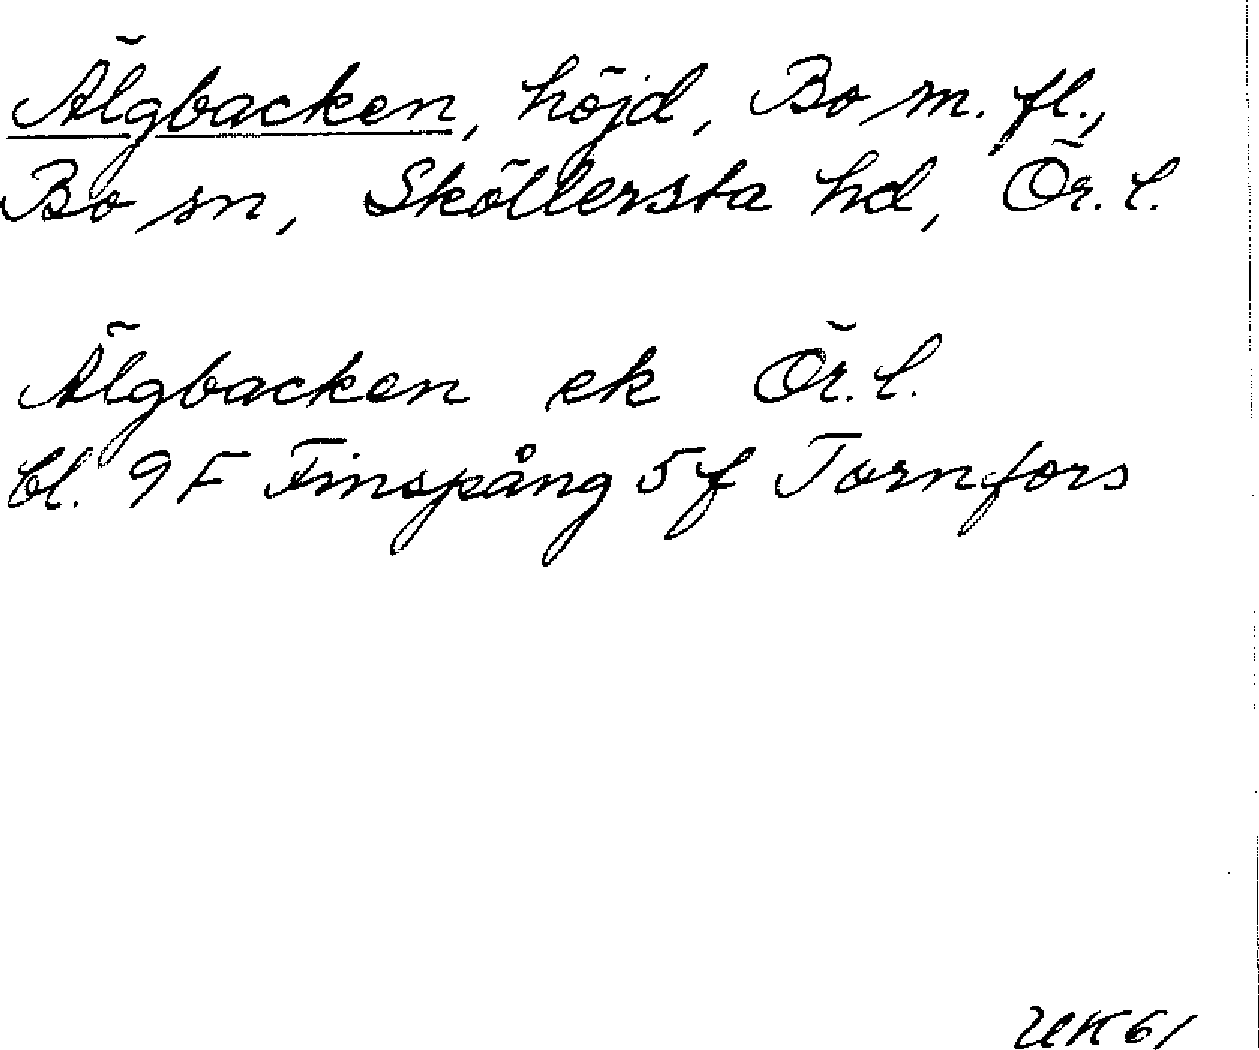 Älgbacken, höjd, Bo m. fl.,
Bo sn, Sköllersta hd, Ör. l.
Älgbacken ek Ör. l.
bl. 9F Finspång 5f Tornfors
UK 61